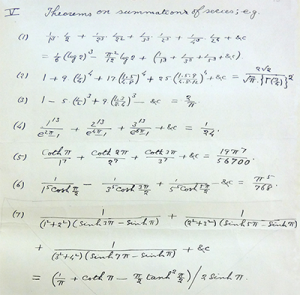 V Theorems on summations of series; e.g.
(1) 1/1³ · 1/2 + 1/2³ · 1/2² + 1/3³ · 1/2³ + 1/4³ · 1/2⁴ + &c
= 1/6 (log 2)³ − π²/12 log 2 + (1/1³ + 1/3³ + 1/5³ + &c)
(2) 1 + 9·(1/4)⁴ + 17·(1·5/4·8)⁴ + 25·(1·5·9/4·8·12)⁴ + &c = 2√2/√π·{Γ(3/4)}²
(3) 1 − 5·(1/2)³ + 9·(1·3/2·4)³ − &c = 2/π
(4) 1¹³/e^2π−1 + 2¹³/e^4π−1 + 3¹³/e^6π−1 + &c = 1/24.
(5) coth π/1⁷ + coth 2π/2⁷ + coth 3π/3⁷ + &c = 19π⁷/56700.
(6) 1/1⁵cosh π/2 − 1/3⁵cosh 3π/2 + 1/5⁵cosh 5π/2 − &c = π⁵/768.
(7) 1/(1²+2²)(sinh 3π − sinh π) + 1/(2²+3²)(sinh 5π − sinh π)
+ 1/(3²+4²)(sinh 7π − sinh π) + &c
= (1/π + coth π − π/2 tanh² π/2)/2 sinh π.